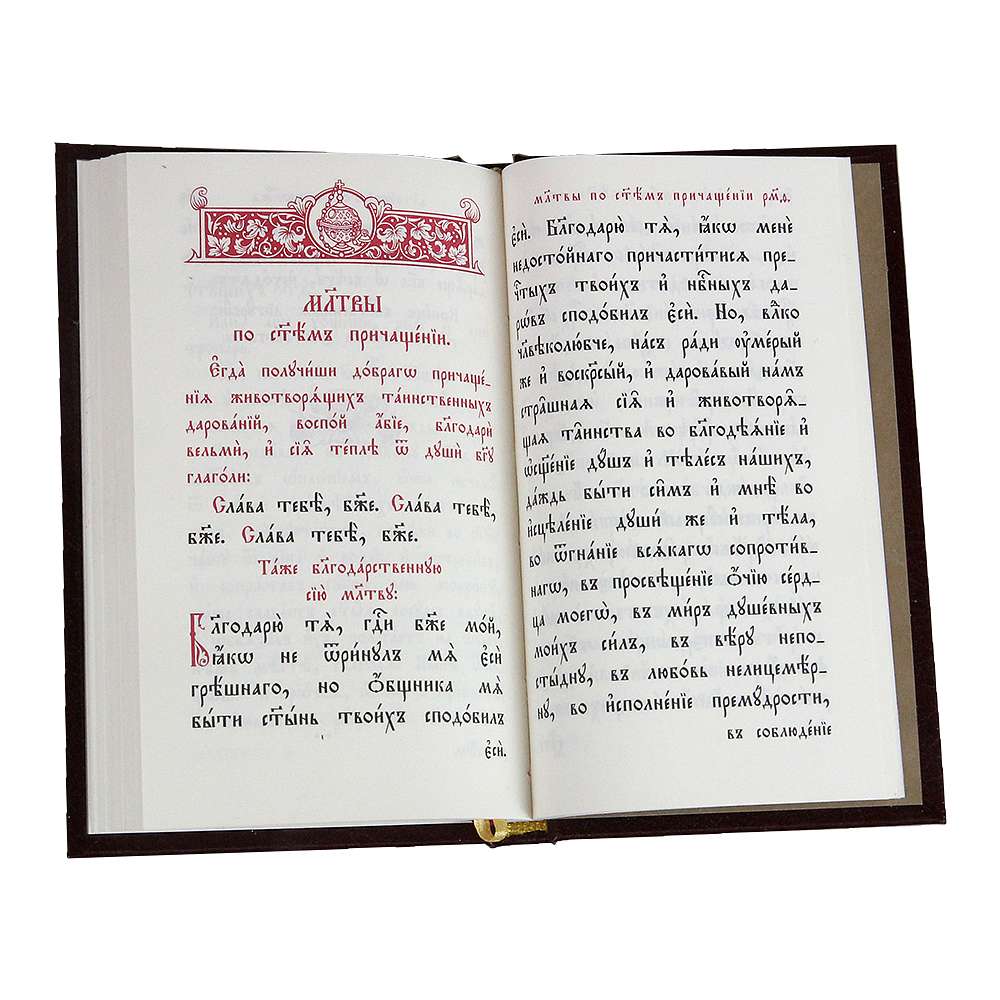 МЛ҃ТВЫ
по ст҃ѣмъ причаще́нїи.
Є҆гда̀ полꙋчи́ши до́брагѡ причаще́-
нїѧ животворѧ́щихъ та́инственныхъ
дарова́нїй, воспо́й а҆́бїе, бл҃годарѝ
вельмѝ, и҆ сїѧ̑ те́плѣ ѿ дꙋшѝ бг҃ꙋ
глаго́ли:
Сла́ва тебѣ̀, бж҃е. Сла́ва тебѣ̀,
бж҃е. Сла́ва тебѣ̀, бж҃е.
Та́же бл҃года́рственнꙋю
сїю̀ мл҃твꙋ:
Бл҃годарю̀ тѧ̀, гдⷭ҇и бж҃е мо́й,
ꙗ҆́кѡ не ѿри́нꙋлъ мѧ̀ є҆сѝ
грѣ́шнаго, но ѻ҆́бщника мѧ̀
бы́ти ст҃ы́нь твои́хъ сподо́билъ
є҆сѝ.
мл҃твы по ст҃ѣмъ причаще́нїи рм҃ѳ.
є҆сѝ. Бл҃годарю̀ тѧ̀, ꙗ҆́кѡ менѐ
недосто́йнаго причасти́тисѧ пре-
чⷭ҇тыхъ твои́хъ и҆ нбⷭ҇ныхъ да-
рѡ́въ сподо́билъ є҆сѝ. Но, влⷣко
чл҃вѣколю́бче, на́съ ра́ди ᲂу҆ме́рый
же и҆ воскрⷭ҇ый, и҆ дарова́вый на́мъ
стра̑шнаѧ сїѧ̑ и҆ животворѧ̑-
щаѧ та̑инства во бл҃годѣѧ́нїе и҆
ѡ҆сщ҃е́нїе дꙋ́шъ и҆ тѣле́съ на́шихъ,
да́ждь бы́ти си̑мъ и҆ мнѣ̀ во
и҆сцѣле́нїе дꙋши́ же и҆ тѣ́ла,
во ѿгна́нїе всѧ́кагѡ сопроти́в-
нагѡ, въ просвѣще́нїе ѻ҆́чїю се́рд-
ца моегѡ̀, въ ми́ръ дꙋше́вныхъ
мои́хъ си́лъ, въ вѣ́рꙋ непо-
сты́днꙋ, въ любо́вь нелицемѣ́р-
нꙋ, во и҆сполне́нїе премꙋ́дрости,
въ соблюде́нїе